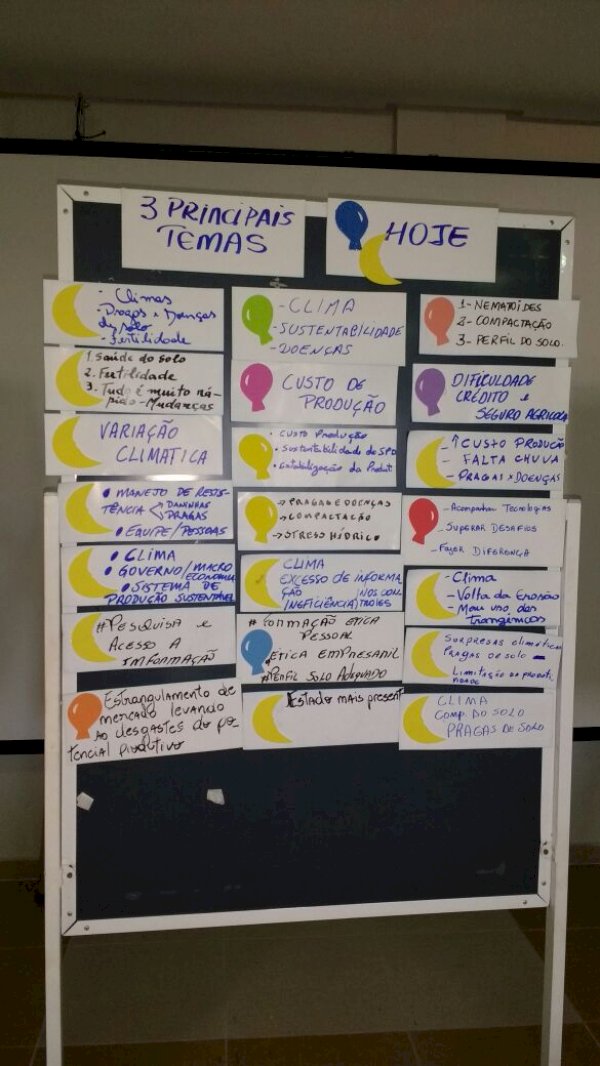 3 PRINCIPAIS
TEMAS
HOJE
- Climas
- Pragas e Doenças
do solo
- fertilidade
- CLIMA
- SUSTENTABILIDADE
- DOENÇAS
1- NEMATÓIDES
2- COMPACTAÇÃO
3- PERFIL DO SOLO.
1. Saúde do solo
2. Fertilidade
3. Tudo é muito rá-
pido - Mudanças
CUSTO DE
PRODUÇÃO
DIFICULDADE
CRÉDITO e
SEGURO AGRICOLA
VARIAÇÃO
CLIMATICA
• CUSTO PRODUÇÃO
• Sustentabilidade do SPD
• Estabilização da Produt
- ↑ CUSTO PRODUÇÃO
- FALTA CHUVA
- PRAGAS e DOENÇAS
• MANEJO DE RESIS-
TÊNCIA < DANINHAS
PRAGAS
• EQUIPE/PESSOAS
→ PRAGAS E DOENÇAS
→ COMPACTAÇÃO
→ STRESS HÍDRICO
- Acompanhar Tecnologias
- SUPERAR DESAFIOS
- Fazer DIFERENÇA
• CLIMA
• GOVERNO/MACRO
ECONOMIA
• SISTEMA DE
PRODUÇÃO SUSTENTÁVEL
CLIMA
EXCESSO DE INFORMA
ÇÃO
(NEFICIÊNCIA) NOS CON
TROLES
- Clima
- Volta da Erosão
- Mau uso dos
Transgênicos
# PESQUISA e
ACESSO A
INFORMAÇÃO
# FORMAÇÃO ETICA
PESSOAL
ETICA EMPRESARIL
# PERFIL SOLO ADEQUADO
SURPRESAS climáticas
PRAGAS DE solo
Limitação da produti
Estrangulamento de
mercado levando
ao desgastes do po-
tencial produtivo
Estado mais present
CLIMA
COMP. DO SOLO
PRAGAS DE SOLO